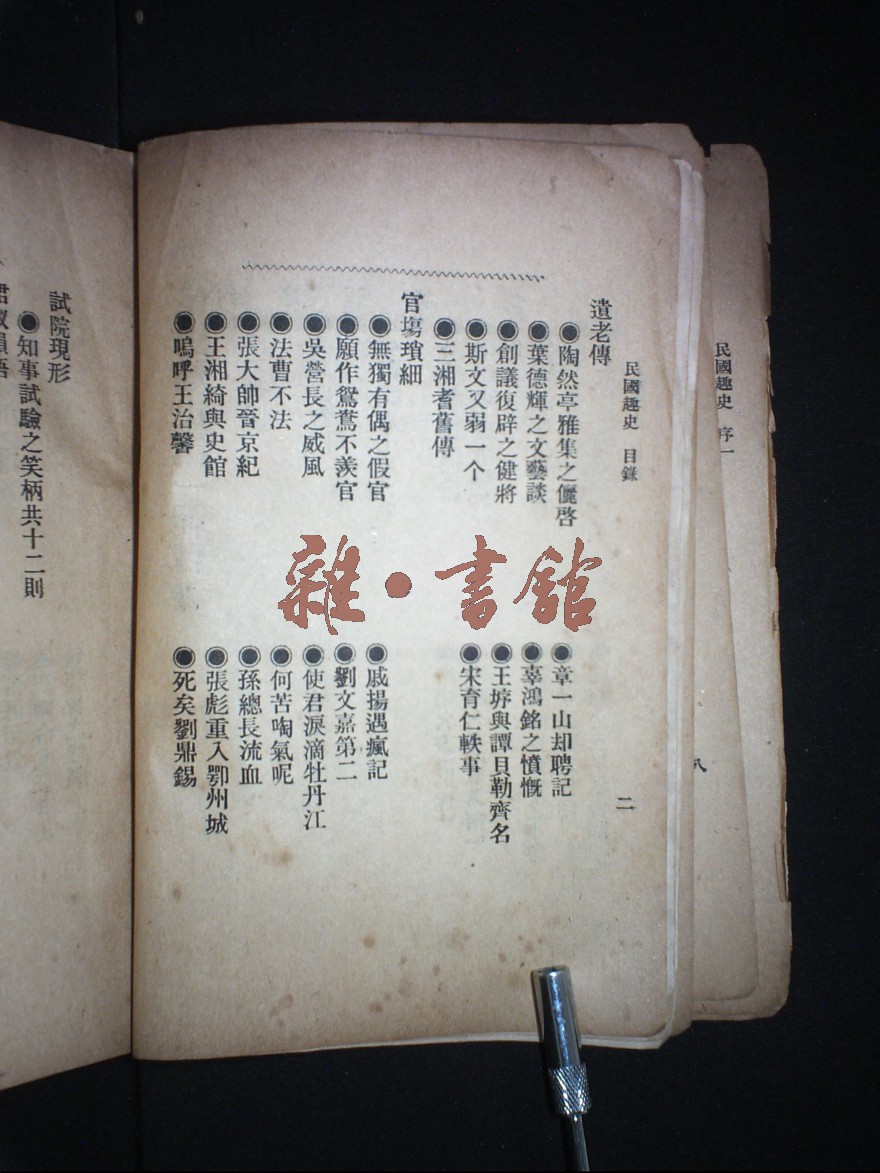 民國趣史 序一
八
民國趣史 目錄
二
遺老傳
◉陶然亭雅集之儷啓
◉章一山却聘記
◉葉德輝之文藝談
◉辜鴻銘之憤慨
◉創議復辟之健將
◉王垿與譚貝勒齊名
◉斯文又弱一个
◉宋育仁軼事
◉三湘耆舊傳
官塲瑣細
◉無獨有偶之假官
◉戚揚遇瘋記
◉願作鴛鴦不羨官
◉劉文嘉第二
◉吳營長之威風
◉使君淚滴牡丹江
◉法曹不法
◉何苦啕氣呢
◉張大帥晉京紀
◉孫總長流血
◉王湘綺與史館
◉張彪重入鄂州城
◉嗚呼王治馨
◉死矣劉鼎錫
試院現形
◉知事試驗之笑柄共十二則
雜·書舘